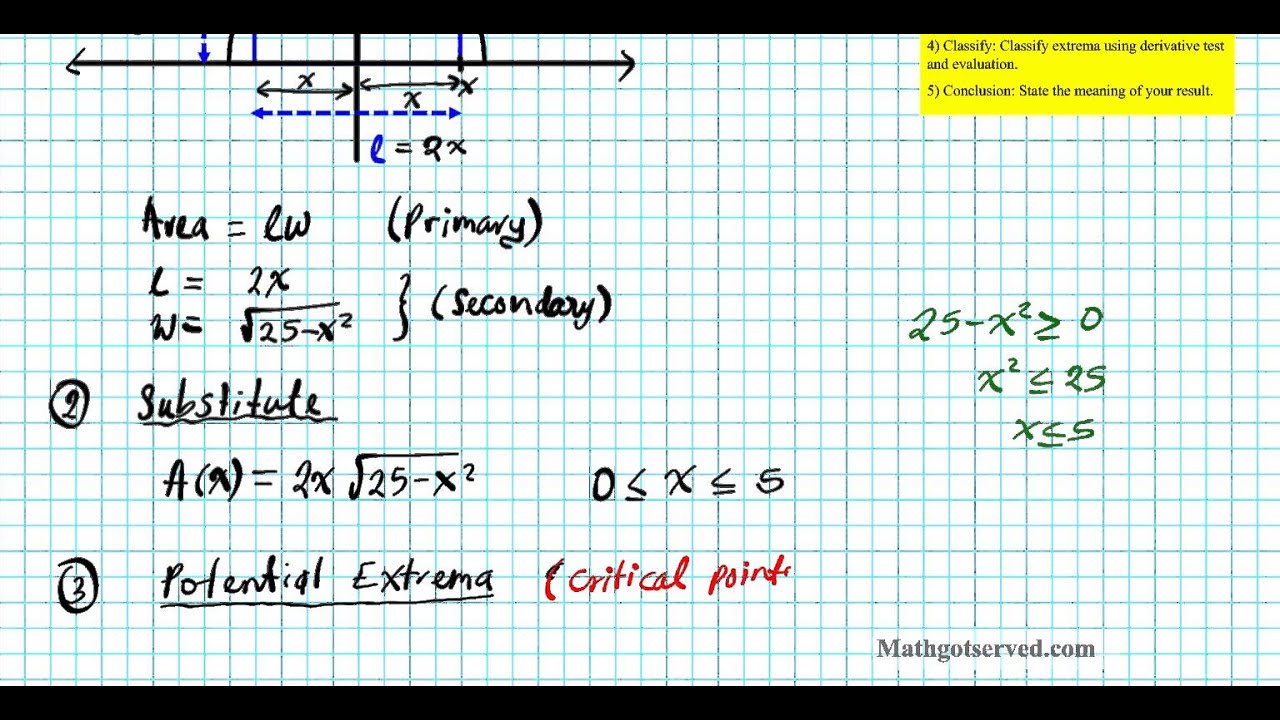 4) Classify: Classify extrema using derivative test
and evaluation.
5) Conclusion: State the meaning of your result.
x
x
x
l = 2x
Area = lw (Primary)
l = 2x
w = √25-x² } (Secondary)
25-x² ≥ 0
x² ≤ 25
x ≤ 5
② Substitute
A(x) = 2x √25-x² 0 ≤ x ≤ 5
③ Potential Extrema (Critical point
Mathgotserved.com